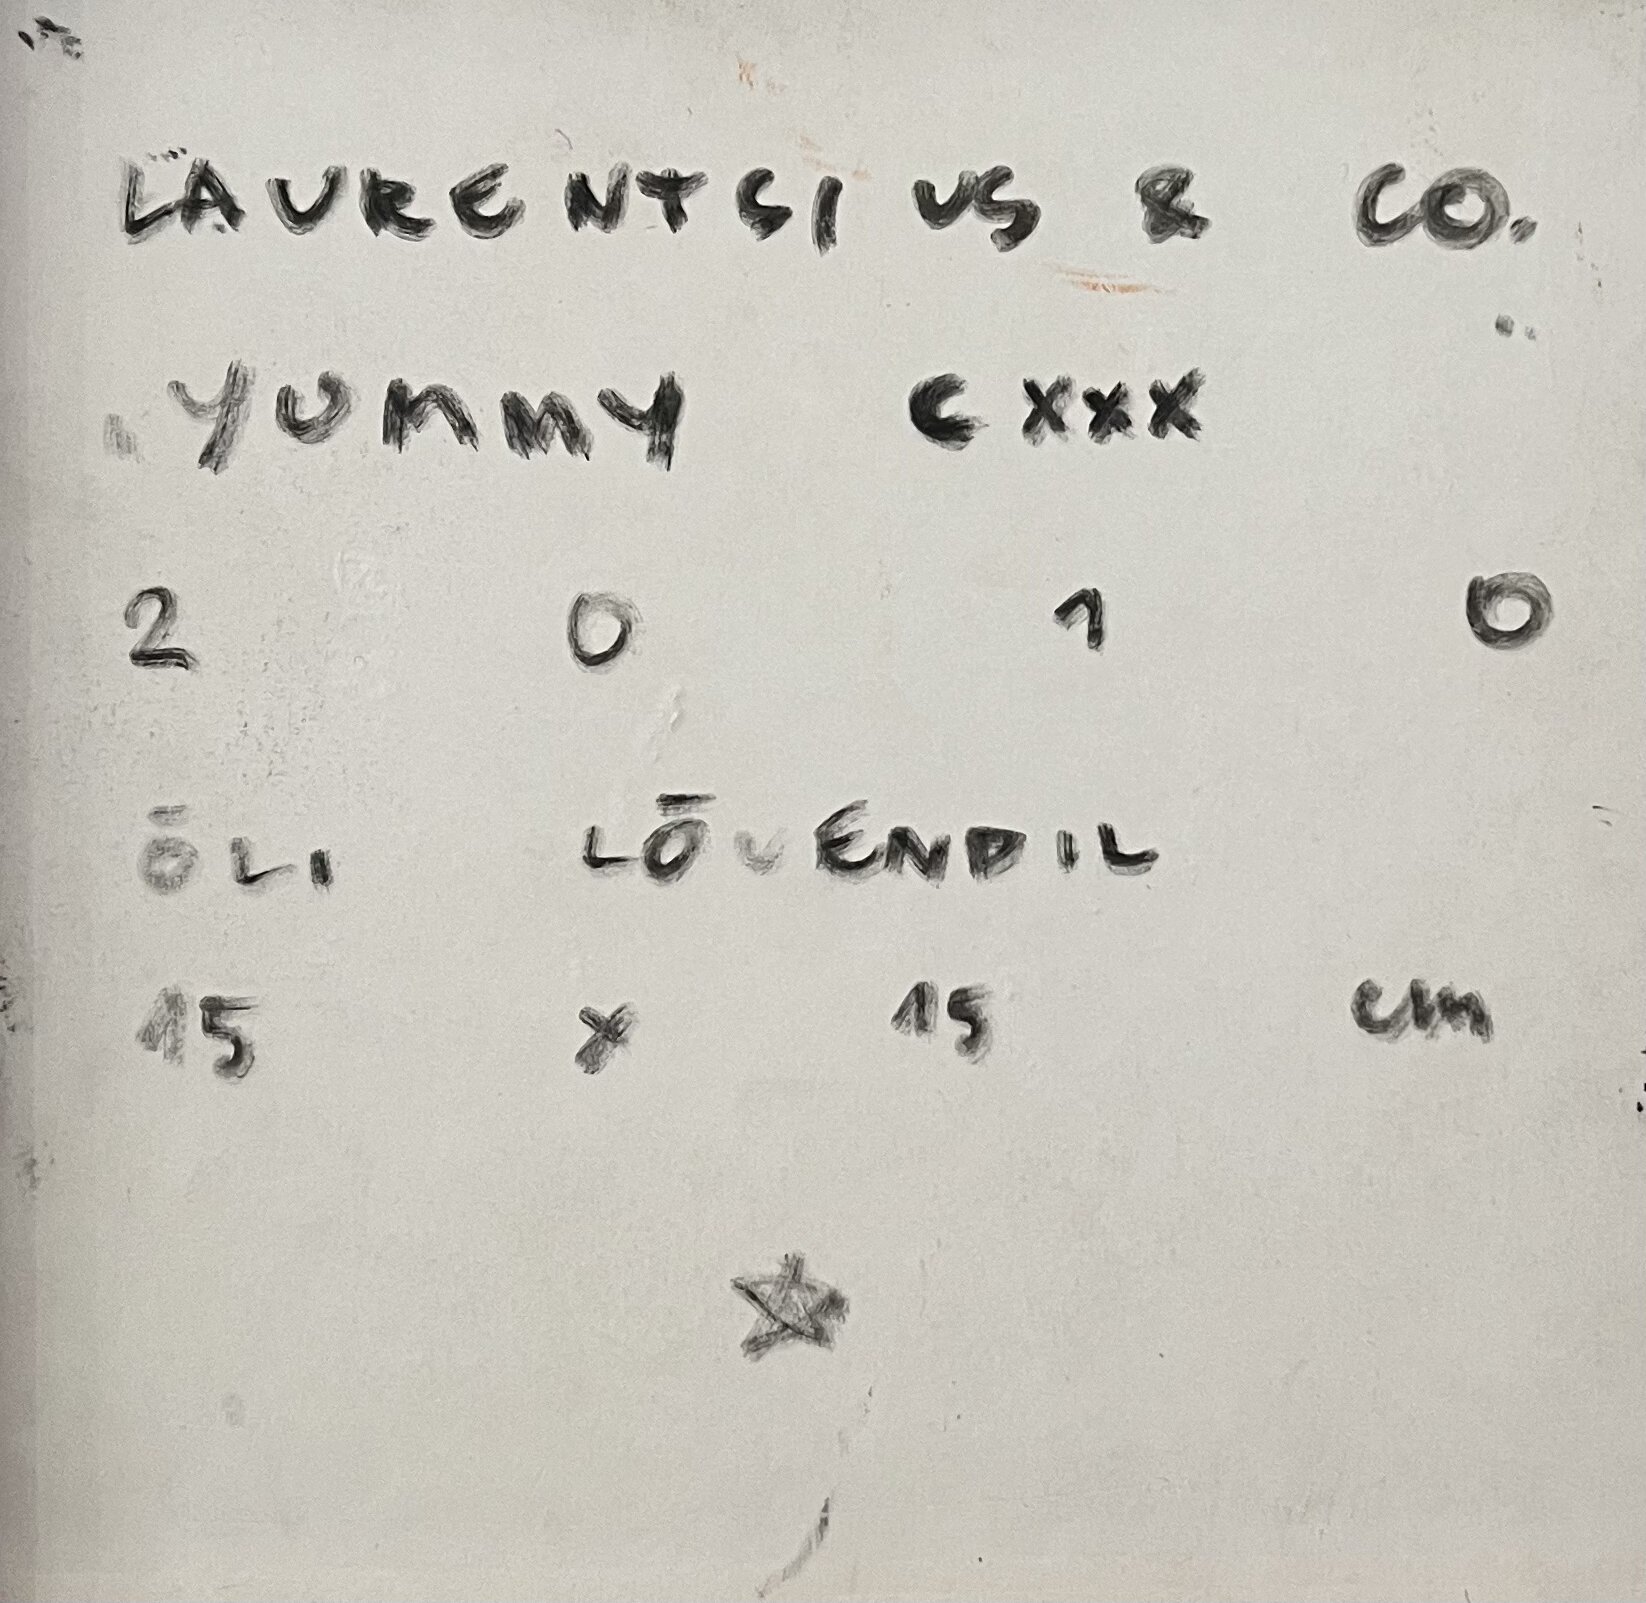 LAURENTSIUS & CO.
YUMMY CXXX
2010
ÕLI LÕUENDIL
15 x 15 cm